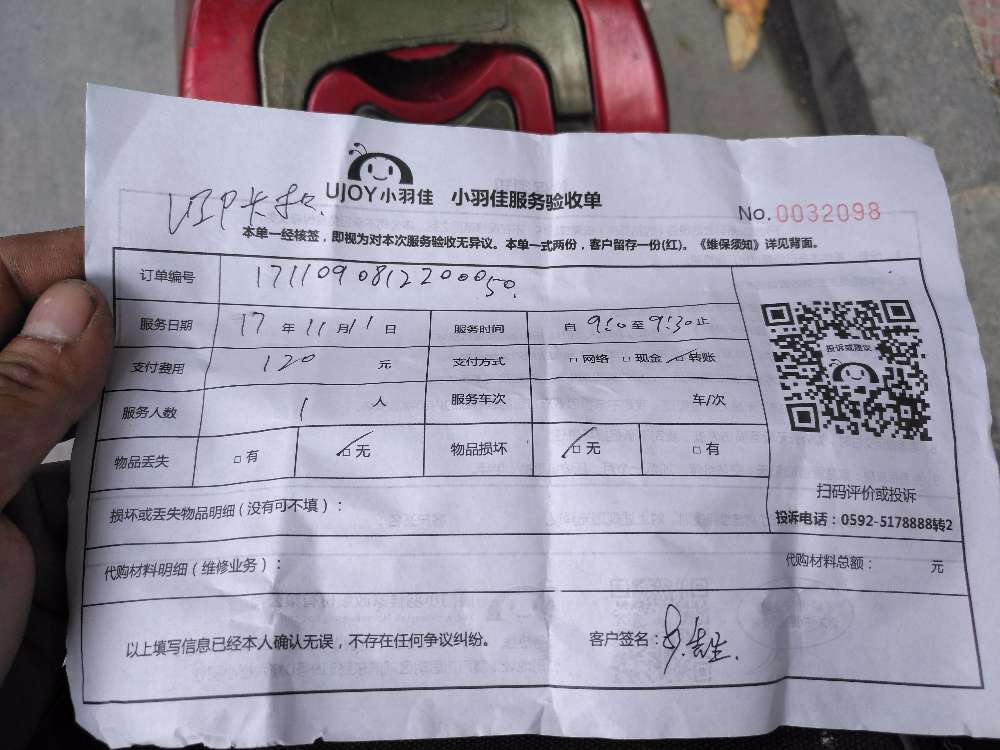 VIP卡扣.
UJOY小羽佳 小羽佳服务验收单
No.0032098
本单一经核签，即视为对本次服务验收无异议。本单一式两份，客户留存一份(红)。《维保须知》详见背面。
订单编号 17110908122000050.
服务日期 17 年 11 月 11 日 服务时间 自 9:10 至 9:30 止
支付费用 120 元 支付方式 □网络 □现金 ☑转账
服务人数 1 人 服务车次 车/次
物品丢失 □有 ☑无 物品损坏 ☑无 □有
投诉或建议
扫码评价或投诉
投诉电话：0592-5178888转2
损坏或丢失物品明细(没有可不填)：
代购材料明细(维修业务)： 代购材料总额： 元
以上填写信息已经本人确认无误，不存在任何争议纠纷。 客户签名： 先生.